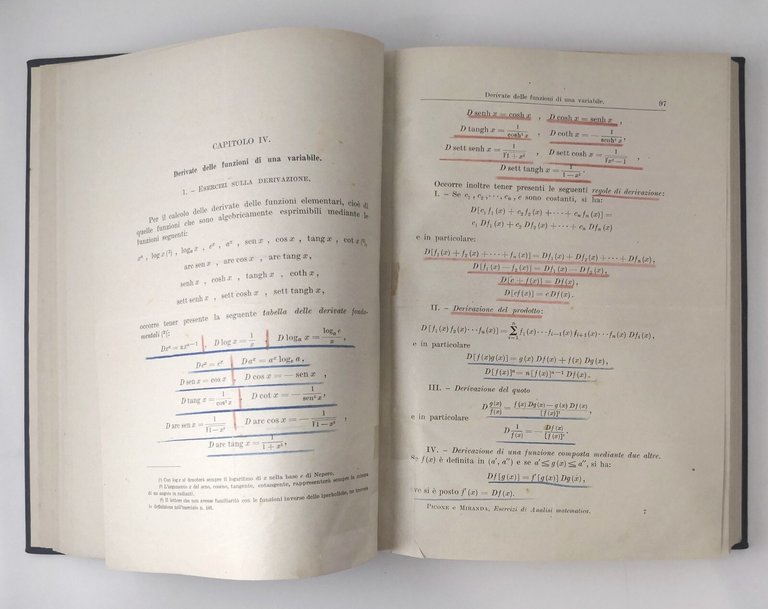 CAPITOLO IV.
Derivate delle funzioni di una variabile.
1. - ESERCIZI SULLA DERIVAZIONE.
Per il calcolo delle derivate delle funzioni elementari, cioè di
quelle funzioni che sono algebricamente esprimibili mediante le
funzioni seguenti:
xⁿ , log x (¹) , logₐ x , eˣ , aˣ , sen x , cos x , tang x , cot x (²),
arc sen x , arc cos x , arc tang x ,
senh x , cosh x , tangh x , coth x ,
sett senh x , sett cosh x , sett tangh x ,
occorre tener presente la seguente tabella delle derivate fonda-
mentali (³):
D log x = 1/x , D logₐ x = logₐ e / x ,
Deˣ = eˣ , Daˣ = aˣ logₑ a ,
D sen x = cos x , D cos x = — sen x ,
D tang x = 1/cos² x , D cot x = — 1/sen² x ,
D arc sen x = 1/√1—x² , D arc cos x = — 1/√1—x² ,
D arc tang x = 1/1+x² ,
¹) Con log x si denoterà sempre il logaritmo di x nella base e di Nepero.
²) L'argomento x del seno, coseno, tangente, cotangente, rappresenterà sempre la misura
di un angolo in radianti.
³) Il lettore che non avesse familiarità con le funzioni inverse delle iperboliche, ne troverà
le definizioni nell'esercizio n.
Derivate delle funzioni di una variabile. 97
D senh x = cosh x , D cosh x = senh x ,
D tangh x = 1/cosh² x , D coth x = — 1/senh² x ,
D sett senh x = 1/√1+x² , D sett cosh x = 1/√x²—1 ,
D sett tangh x = 1/1—x² .
Occorre inoltre tener presenti le seguenti regole di derivazione:
I. - Se c₁ , c₂ , ··· , cₙ , c sono costanti, si ha:
D[c₁ f₁ (x) + c₂ f₂ (x) + ··· + cₙ fₙ (x)] =
c₁ Df₁ (x) + c₂ Df₂ (x) + ··· + cₙ Dfₙ (x)
e in particolare:
D[f₁ (x) + f₂ (x) + ··· + fₙ (x)] = Df₁ (x) + Df₂ (x) + ··· + Dfₙ (x),
D[f₁ (x) — f₂ (x)] = Df₁ (x) — Df₂ (x),
D[c + f(x)] = Df(x),
D[cf(x)] = c Df(x).
II. - Derivazione del prodotto:
D[f₁ (x) f₂ (x) ··· fₙ (x)] = Σⁿᵢ₌₁ f₁ (x) ··· fᵢ₋₁ (x) fᵢ₊₁ (x) ··· fₙ (x) Dfᵢ (x),
e in particolare
D[f(x)g(x)] = g(x) Df(x) + f(x) Dg(x),
D[f(x)]ⁿ = n[f(x)]ⁿ⁻¹ Df(x).
III. - Derivazione del quoto
D g(x)/f(x) = f(x) Dg(x) — g(x) Df(x) / [f(x)]² ,
e in particolare
D 1/f(x) = — Df(x)/[f(x)]² .
IV. - Derivazione di una funzione composta mediante due altre.
Se f(x) è definita in (a′, a″) e se a′ ≦ g(x) ≦ a″, si ha:
Df[g(x)] = f′[g(x)] Dg(x),
ve si è posto f′(x) = Df(x).
PICONE e MIRANDA, Esercizi di Analisi matematica. 7